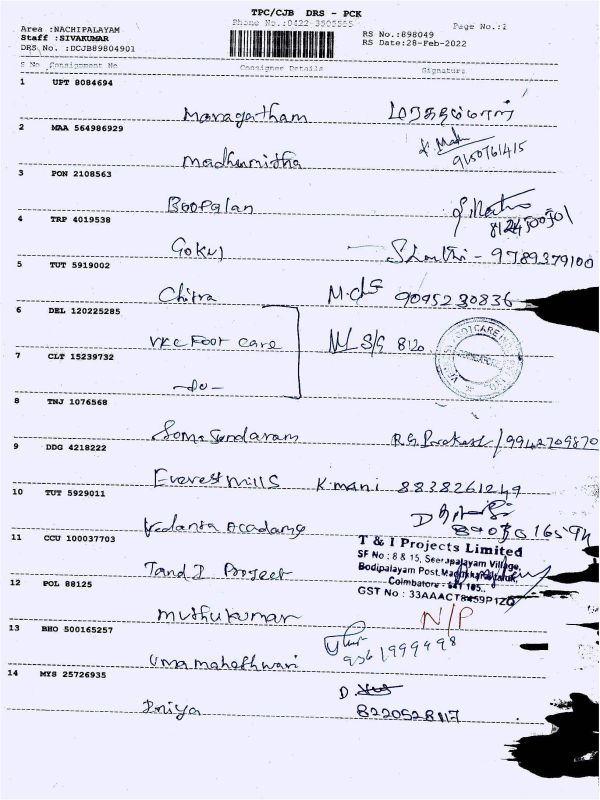 TPC/CJB DRS - PCK
Phone No.:0422-3505555
Page No.:2
Area :NACHIPALAYAM
Staff :SIVAKUMAR
DRS No. :DCJB89804901
RS No.:898049
RS Date:28-Feb-2022
S No Consignment No Consignee Details Signature
1 UPT 8084694
Maragatham
2 MAA 564986929
Madhumitha 9150761415
3 PON 2108563
Boopalan
4 TRP 4019538
Gokul Shanthi - 9789379100
5 TUT 5919002
Chitra 9095230836
6 DEL 120225285
VKC Foot care
7 CLT 15239732
-do-
8 TNJ 1076568
Soma Sundaram R.S. Prakash / 9942709870
9 DDG 4218222
Everest Mills K. mani 8838261249
10 TUT 5929011
Vedanta Academy
11 CCU 100037703
T & I Projects Limited
SF No : 8 & 15, Seerapalayam Village,
Bodipalayam Post,
Coimbatore - 641 105.
GST No : 33AAACT8459P1ZQ
T and I Project
12 POL 88125
Muthukumar N/P
13 BHO 500165257
Uma maheshwari 9361999998
14 MYS 25726935
Priya 8220528117